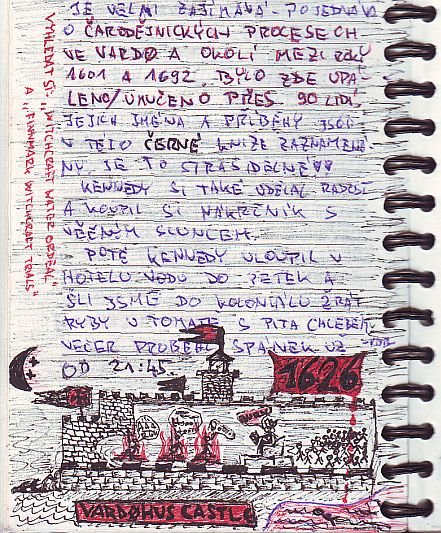 JE VELMI ZAJÍMAVÁ. POJEDNÁVÁ
O ČARODĚJNICKÝCH PROCESECH
VE VARDO A OKOLÍ MEZI ROKY
1601 A 1692. BYLO ZDE UPÁ-
LENO/UMUČENO PŘES 90 LIDÍ.
JEJICH JMÉNA A PŘÍBĚHY JSOU
V TÉTO ČERNÉ KNIZE ZAZNAMENÁ-
NY JE TO STRAŠIDELNÉ
KENNEDY SI TAKÉ UDĚLAL RADOST
A KOUPIL SI NÁKRČNÍK S
VĚČNÝM SLUNCEM.
POTÉ KENNEDY ULOUPIL V
HOTELU VODU DO PETEK A
ŠLI JSME DO KOLONIÁLU ŽRÁT
RYBY V TOMATĚ S PITA CHLEBEM.
VEČER PROBĚHL SPÁNEK UŽ
OD 21:45.
VYHLEDAT SI: "WITCHCRAFT WATER ORDEAL"
A "FINNMARK WITCHCRAFT TRIALS"
1626
VARDOHUS CASTLE